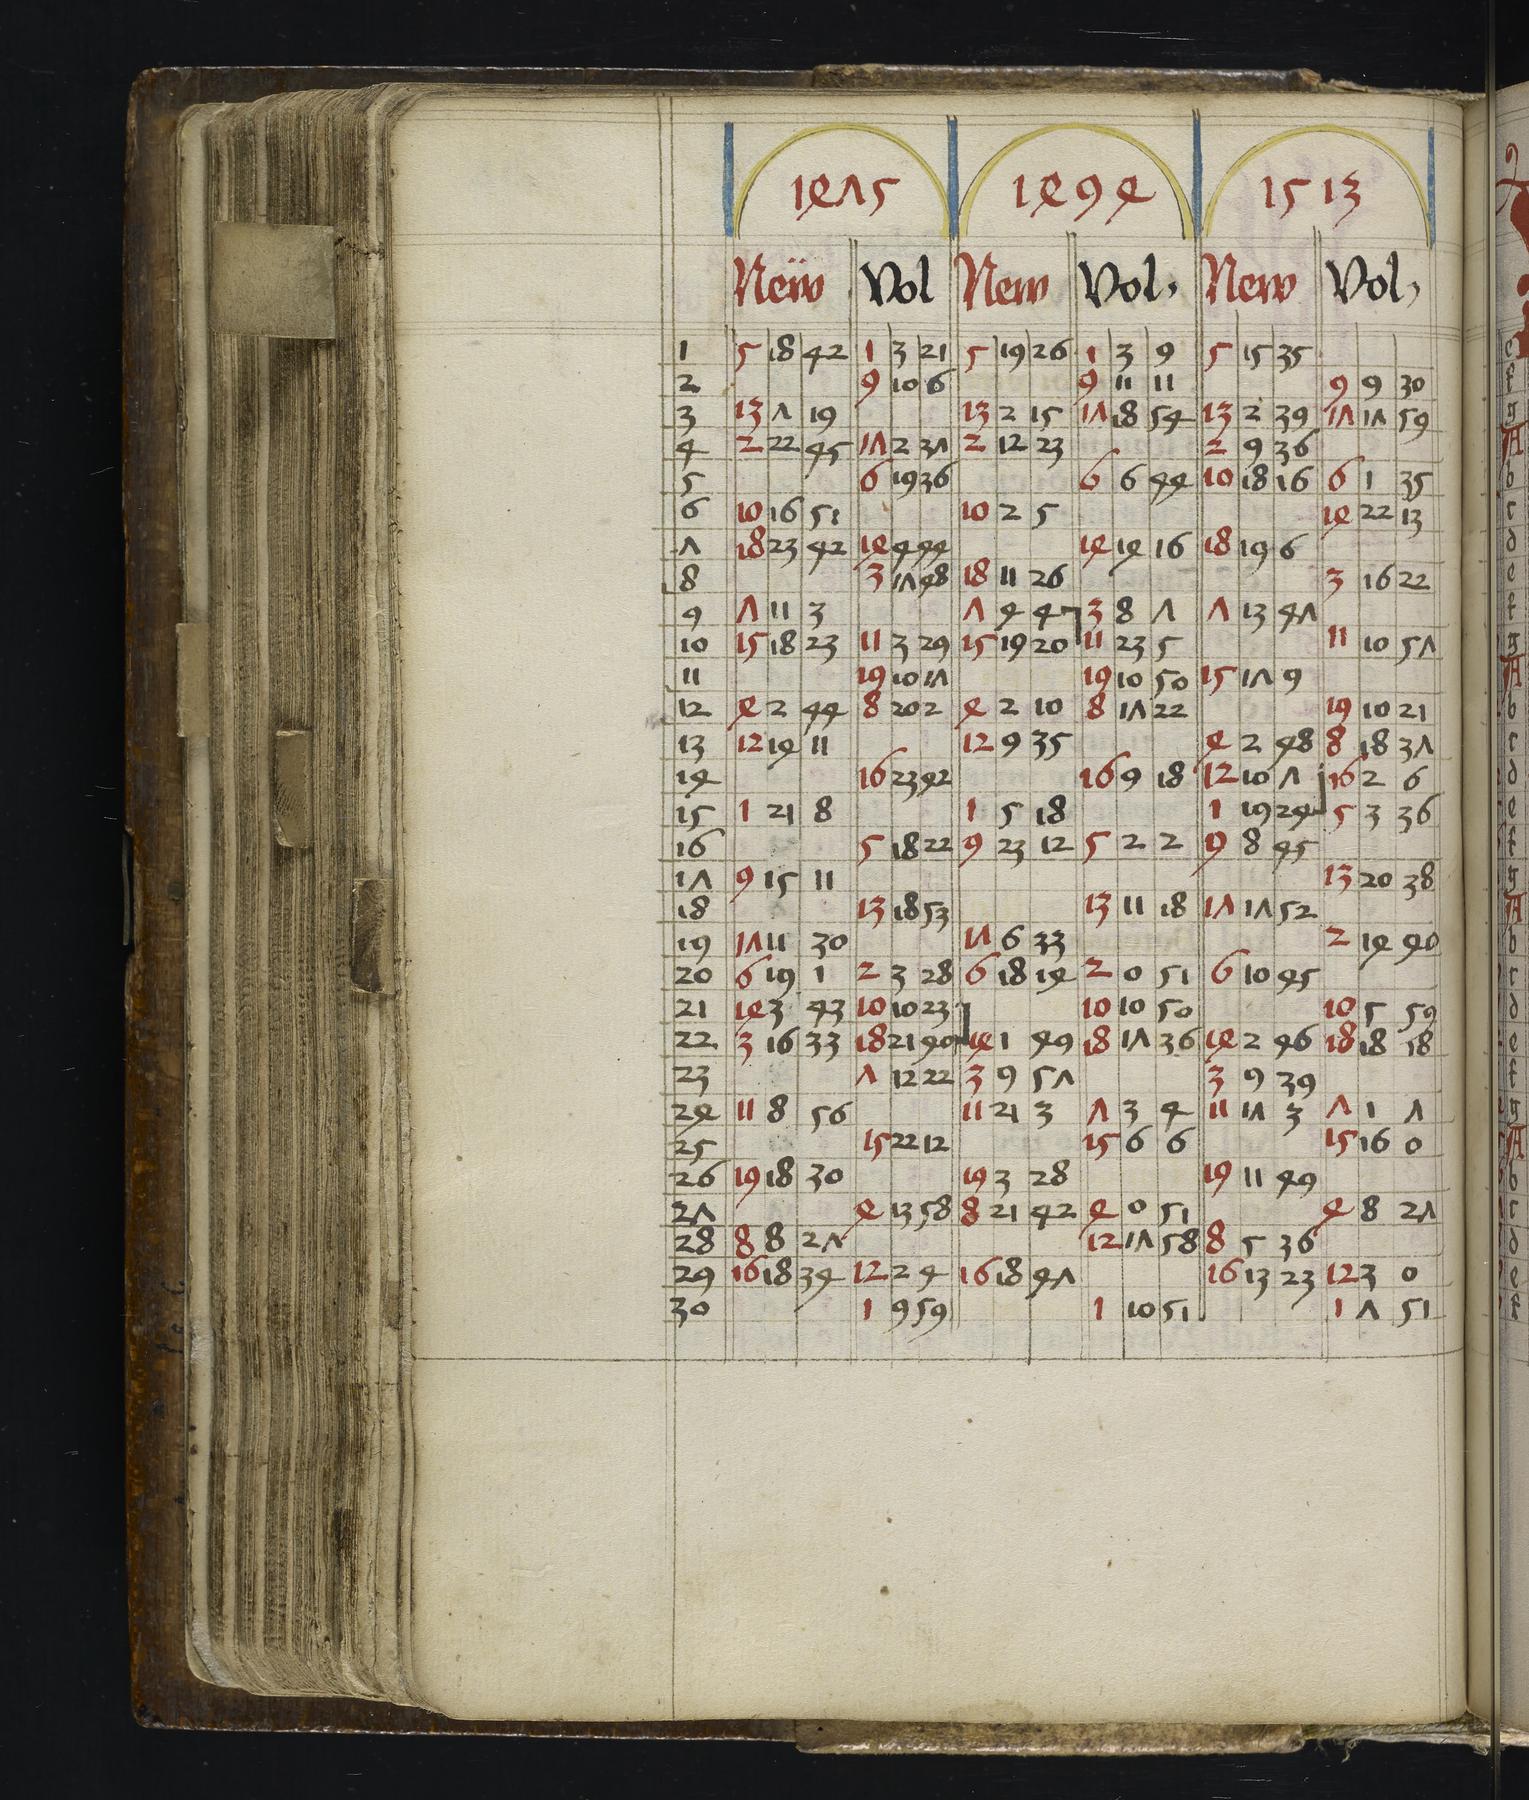 1475 1494 1513
New Vol New Vol, New Vol,
1 5 18 42 1 3 21 5 19 26 1 3 9 5 15 35
2 9 10 6 9 11 11 9 9 30
3 13 7 19 13 2 15 17 18 54 13 2 39 17 17 59
4 2 22 45 17 2 37 2 12 23 2 9 36
5 6 19 36 6 6 44 10 18 16 6 1 35
6 10 16 51 10 2 5 14 22 13
7 18 23 42 14 4 44 14 14 16 18 19 6
8 3 17 48 18 11 26 3 16 22
9 7 11 3 7 4 4 3 8 7 7 13 47
10 15 18 23 11 3 29 15 19 20 11 23 5 11 10 57
11 19 10 17 19 10 50 15 17 9
12 4 2 44 8 20 2 4 2 10 8 17 22 19 10 21
13 12 14 11 12 9 35 4 2 48 8 18 37
14 16 23 42 16 9 18 12 10 7 16 2 6
15 1 21 8 1 5 18 1 19 24 5 3 36
16 5 18 22 9 23 12 5 2 2 9 8 45
17 9 15 11 13 20 38
18 13 18 53 13 11 18 17 17 52
19 17 11 30 17 6 33 2 14 40
20 6 19 1 2 3 28 6 18 14 2 0 51 6 10 45
21 14 3 43 10 10 23 10 10 50 10 5 59
22 3 16 33 18 21 40 14 1 49 18 17 36 14 2 46 18 18 18
23 7 12 22 3 9 57 3 9 39
24 11 8 56 11 21 3 7 3 4 11 17 3 7 1 7
25 15 22 12 15 6 6 15 16 0
26 19 18 30 19 3 28 19 11 49
27 4 13 58 8 21 42 4 0 51 4 8 27
28 8 8 27 12 17 58 8 5 36
29 16 18 34 12 2 4 16 18 47 16 13 23 12 3 0
30 1 9 59 1 10 51 1 7 51